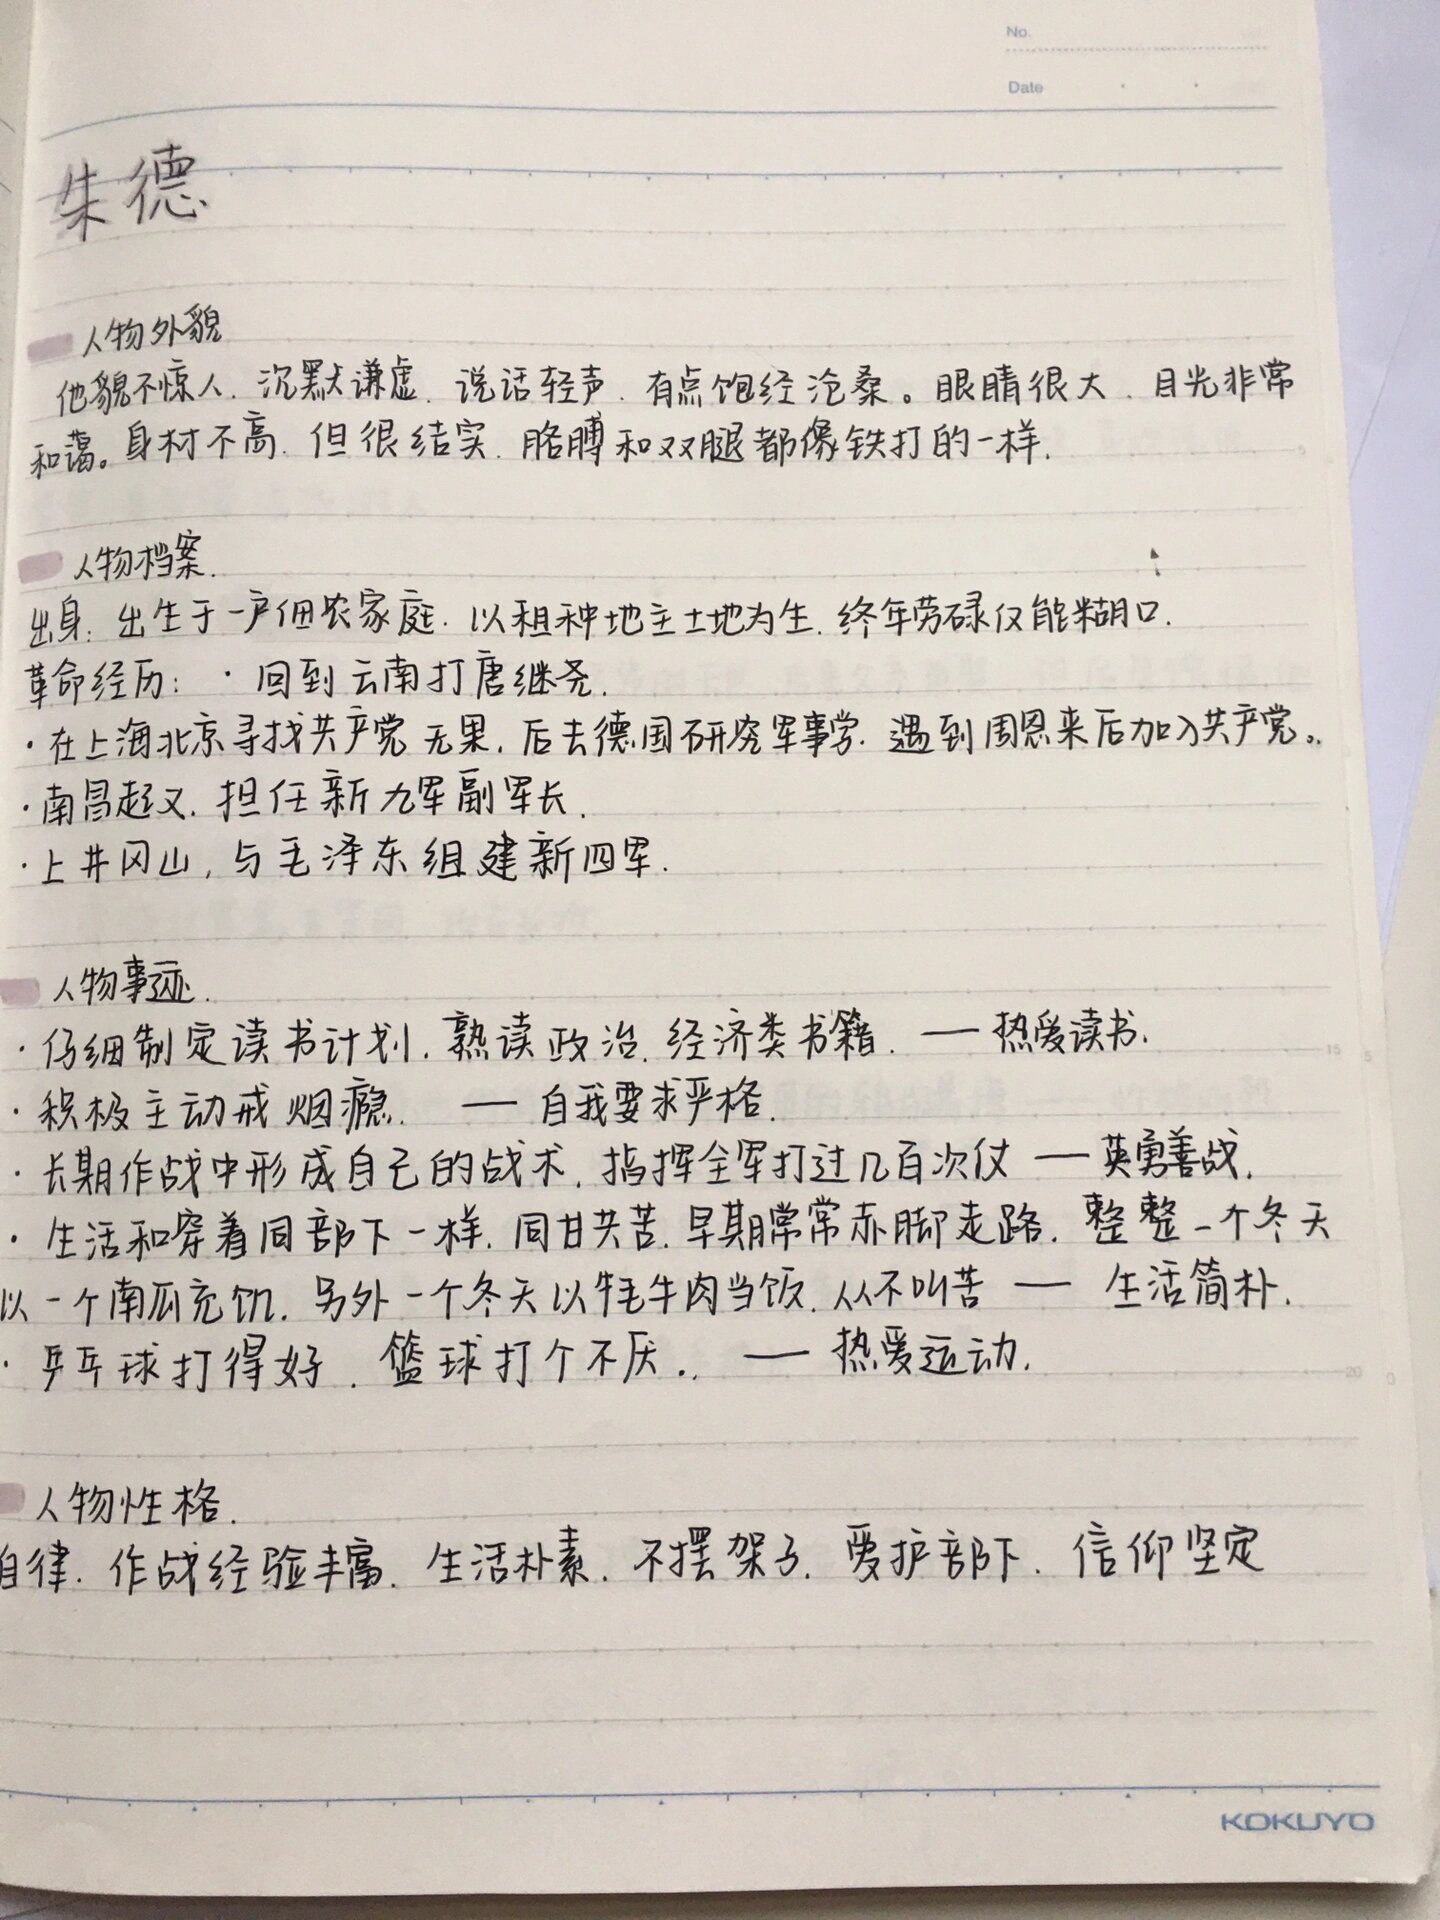 No.
Date
朱德
人物外貌
他貌不惊人. 沉默谦虚. 说话轻声. 有点饱经沧桑。眼睛很大. 目光非常
和蔼。身材不高. 但很结实. 胳膊和双腿都像铁打的一样.
人物档案.
出身: 出生于一户佃农家庭. 以租种地主土地为生. 终年劳碌仅能糊口.
革命经历: ·回到云南打唐继尧.
·在上海北京寻找共产党无果. 后去德国研究军事学. 遇到周恩来后加入共产党。
·南昌起义. 担任新九军副军长.
·上井冈山, 与毛泽东组建新四军.
人物事迹.
·仔细制定读书计划. 熟读政治. 经济类书籍. — 热爱读书.
·积极主动戒烟瘾. — 自我要求严格.
·长期作战中形成自己的战术. 指挥全军打过几百次仗 — 英勇善战.
·生活和穿着同部下一样. 同甘共苦. 早期常常赤脚走路. 整整一个冬天
以一个南瓜充饥. 另外一个冬天以牦牛肉当饭. 从不叫苦 — 生活简朴.
·乒乓球打得好. 篮球打个不厌. — 热爱运动.
人物性格.
自律. 作战经验丰富. 生活朴素. 不摆架子. 爱护部下. 信仰坚定
KOKUYO